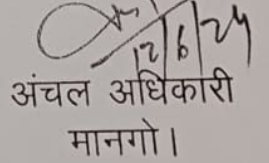 12/6/24
अंचल अधिकारी
मानगो।